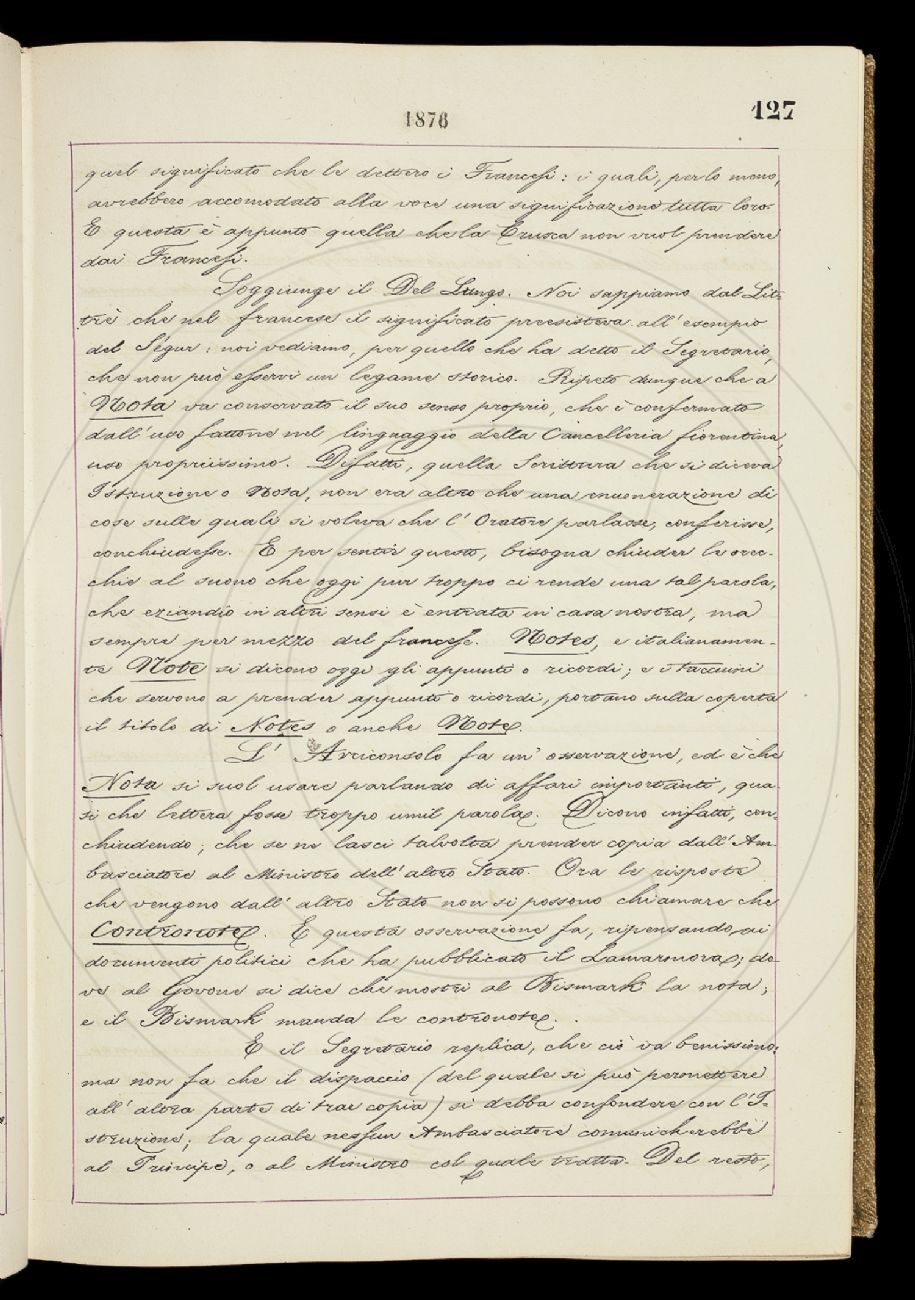 1876
127
quel significato che le dettero i Francesi: i quali, per lo meno,
avrebbero accomodato alla voce una significazione tutta loro.
E questa è appunto quella che la Crusca non vuol prendere
dai Francesi.
Soggiunge il Del Lungo. Noi sappiamo dal Lit-
trè che nel francese il significato preesisteva all'esempio
del Segur: noi vediamo, per quello che ha detto il Segretario,
che non può esservi un legame storico. Ripeto dunque che a
Nota va conservato il suo senso proprio, che è confermato
dall'uso fattone nel linguaggio della Cancelleria fiorentina,
uso propriissimo. Difatti, quella Scrittura che si diceva
Istruzione o Nota, non era altro che una enumerazione di
cose sulle quali si voleva che l'Oratore parlasse, conferisse,
conchiudesse. E per sentir questo, bisogna chiuder le orec-
chie al suono che oggi pur troppo ci rende una tal parola,
che eziandio in altri sensi è entrata in casa nostra, ma
sempre per mezzo del francese. Notes, e italianamen-
te Note si dicono oggi gli appunti o ricordi; e i taccuini
che servono a prender appunti o ricordi, portano sulla coperta
il titolo di Notes o anche Note.
L'Arciconsolo fa un'osservazione, ed è che
Nota si suol usare parlando di affari importanti, qua-
si che lettera fosse troppo umil parola. Dicono infatti, con-
chiudendo; che se ne lasci talvolta prender copia dall'Am-
basciatore al Ministro dell'altro Stato. Ora le risposte
che vengono dall'altro Stato non si possono chiamare che
Contronote. E questa osservazione fa, ripensando, ai
documenti politici che ha pubblicato il Lamarmora; do-
ve al Govone si dice che mostri al Bismark la nota;
e il Bismark manda le contronote.
E il Segretario replica, che ciò va benissimo:
ma non fa che il dispaccio (del quale si può permettere
all'altra parte di trar copia) si debba confondere con l'I-
struzione; la quale nessun Ambasciatore comunicherebbe
al Principe, o al Ministro col quale tratta. Del resto,